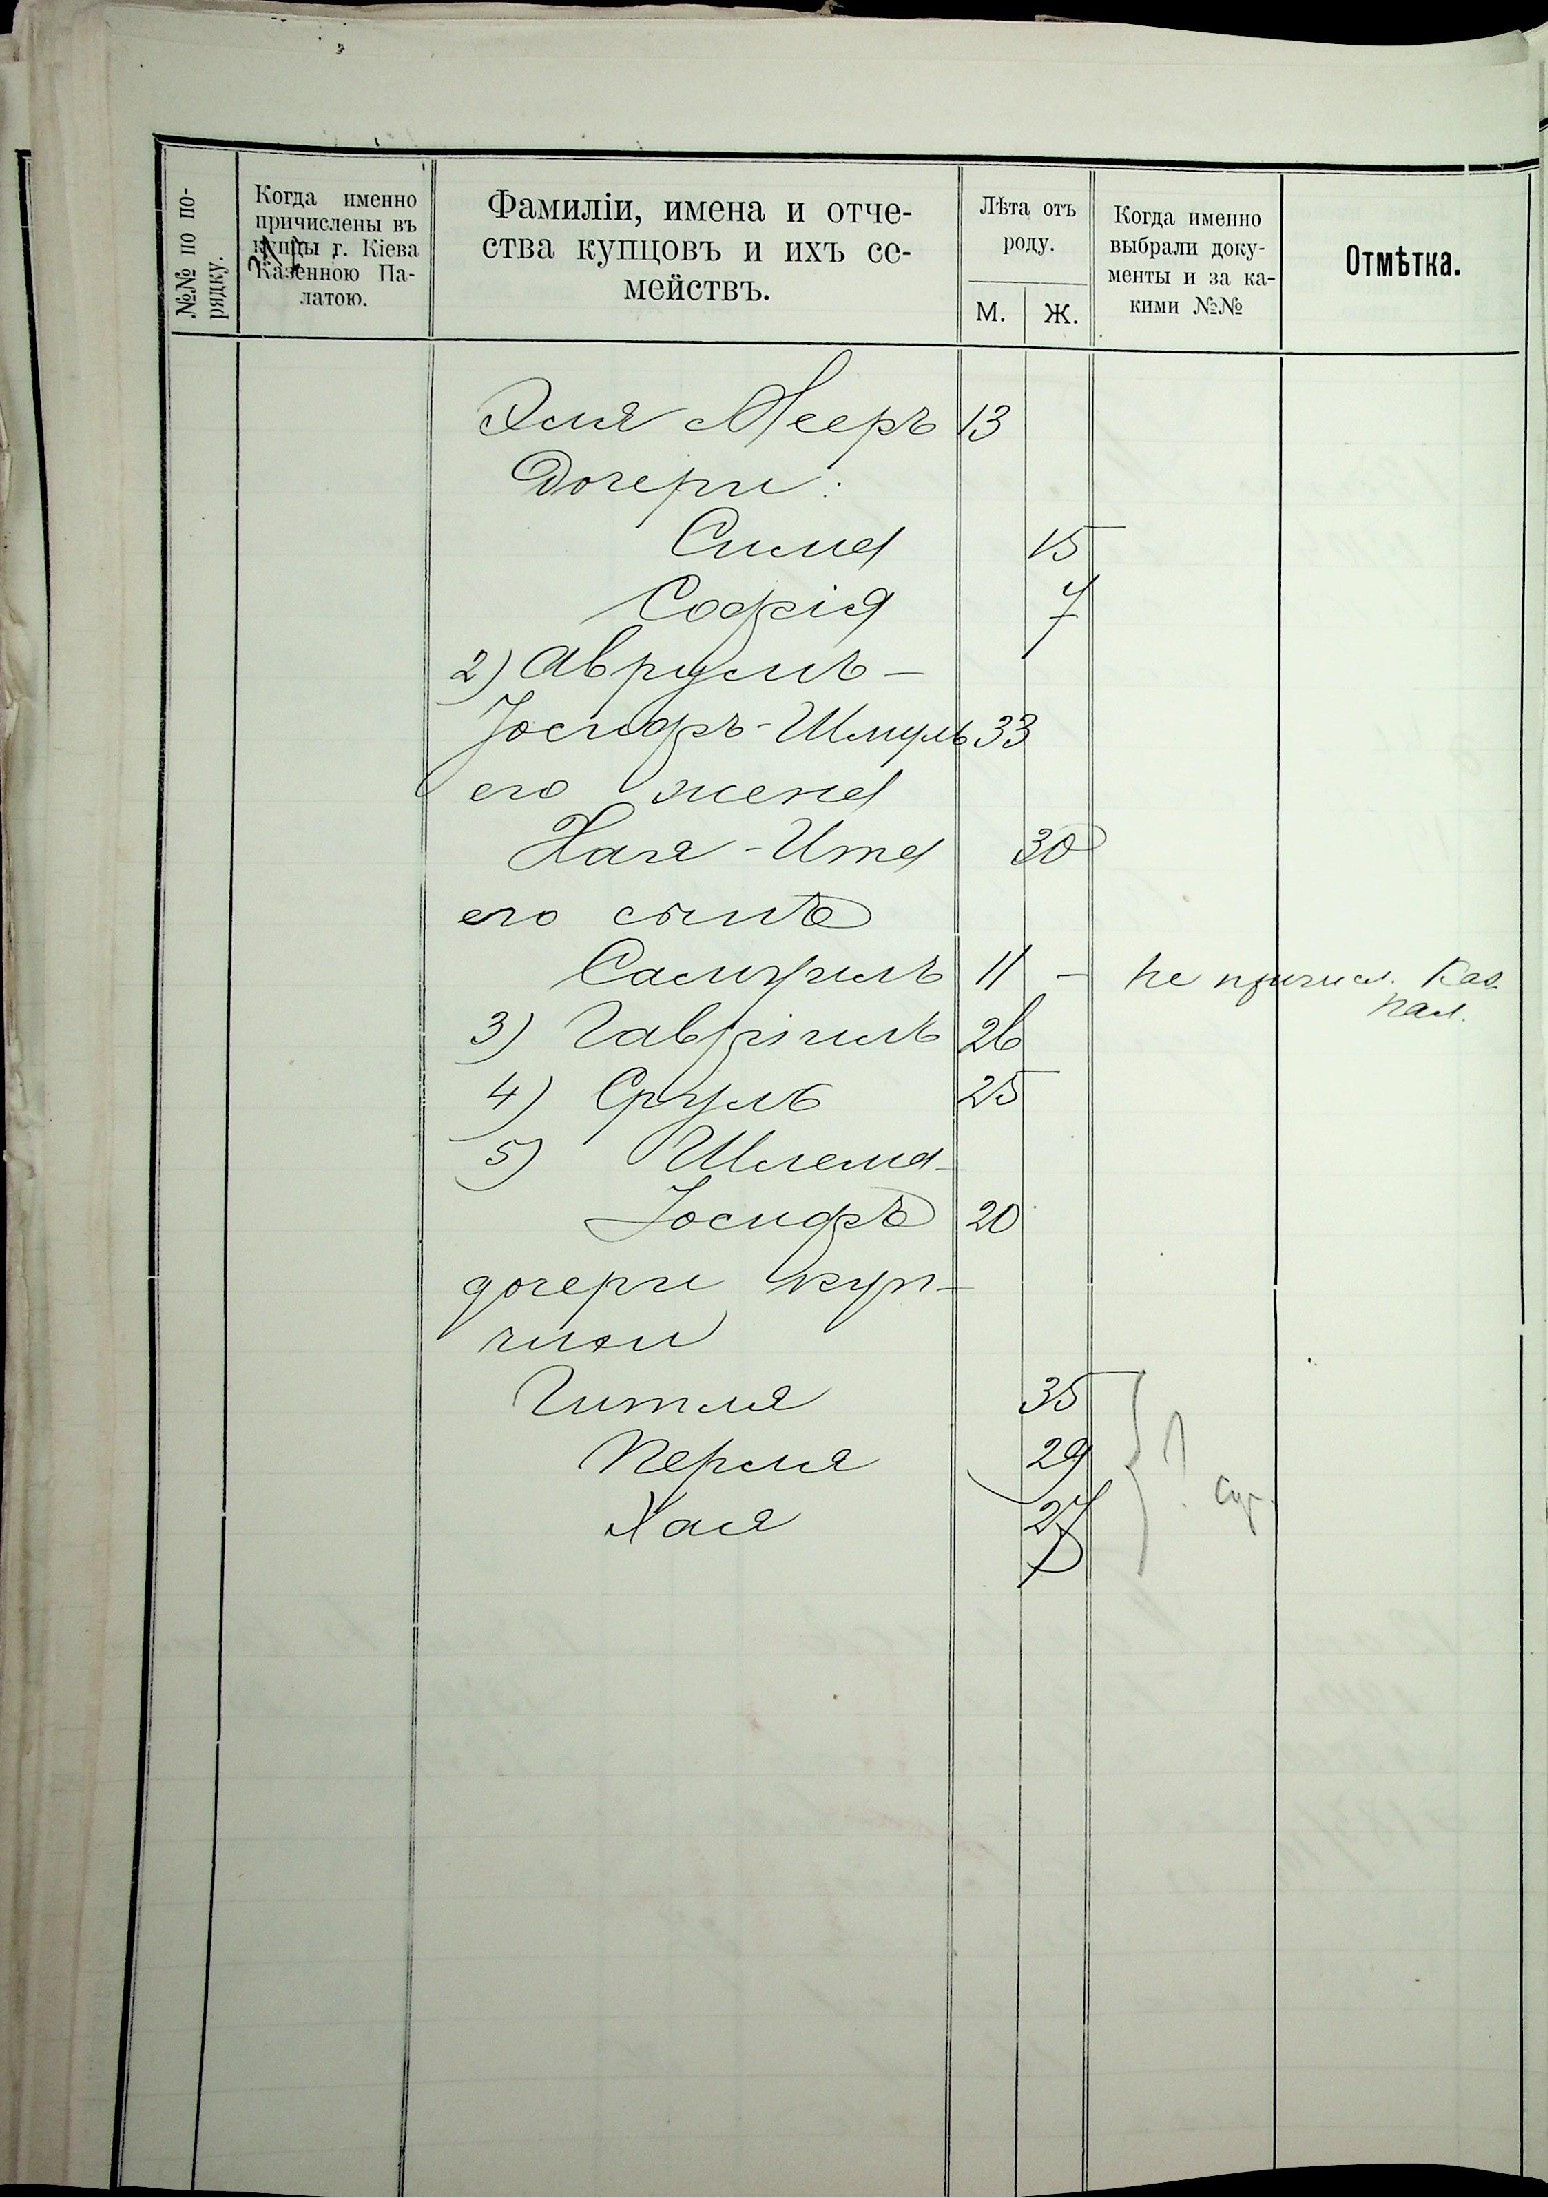 №№ по по-
рядку.
Когда именно
причислены въ
купцы г. Кіева
Казенною Па-
латою.
Фамиліи, имена и отче-
ства купцовъ и ихъ се-
мействъ.
Лѣта отъ
роду.
М.
Ж.
Когда именно
выбрали доку-
менты и за ка-
кими №№
Отмѣтка.
Эля Мееръ 13
Дочери:
Сима 15
Софія 7
2) Аврумъ-
Іосифъ-Шмуль 33
его жена
Хая-Ита 30
его сынъ
Самуилъ 11 - не причисл. Каз.
пал.
3) Гавріилъ 26
4) Сруль 25
5) Шлема-
Іосифъ 20
дочери куп-
чихи
Гитля 35
Перля 29
Хася 27
?